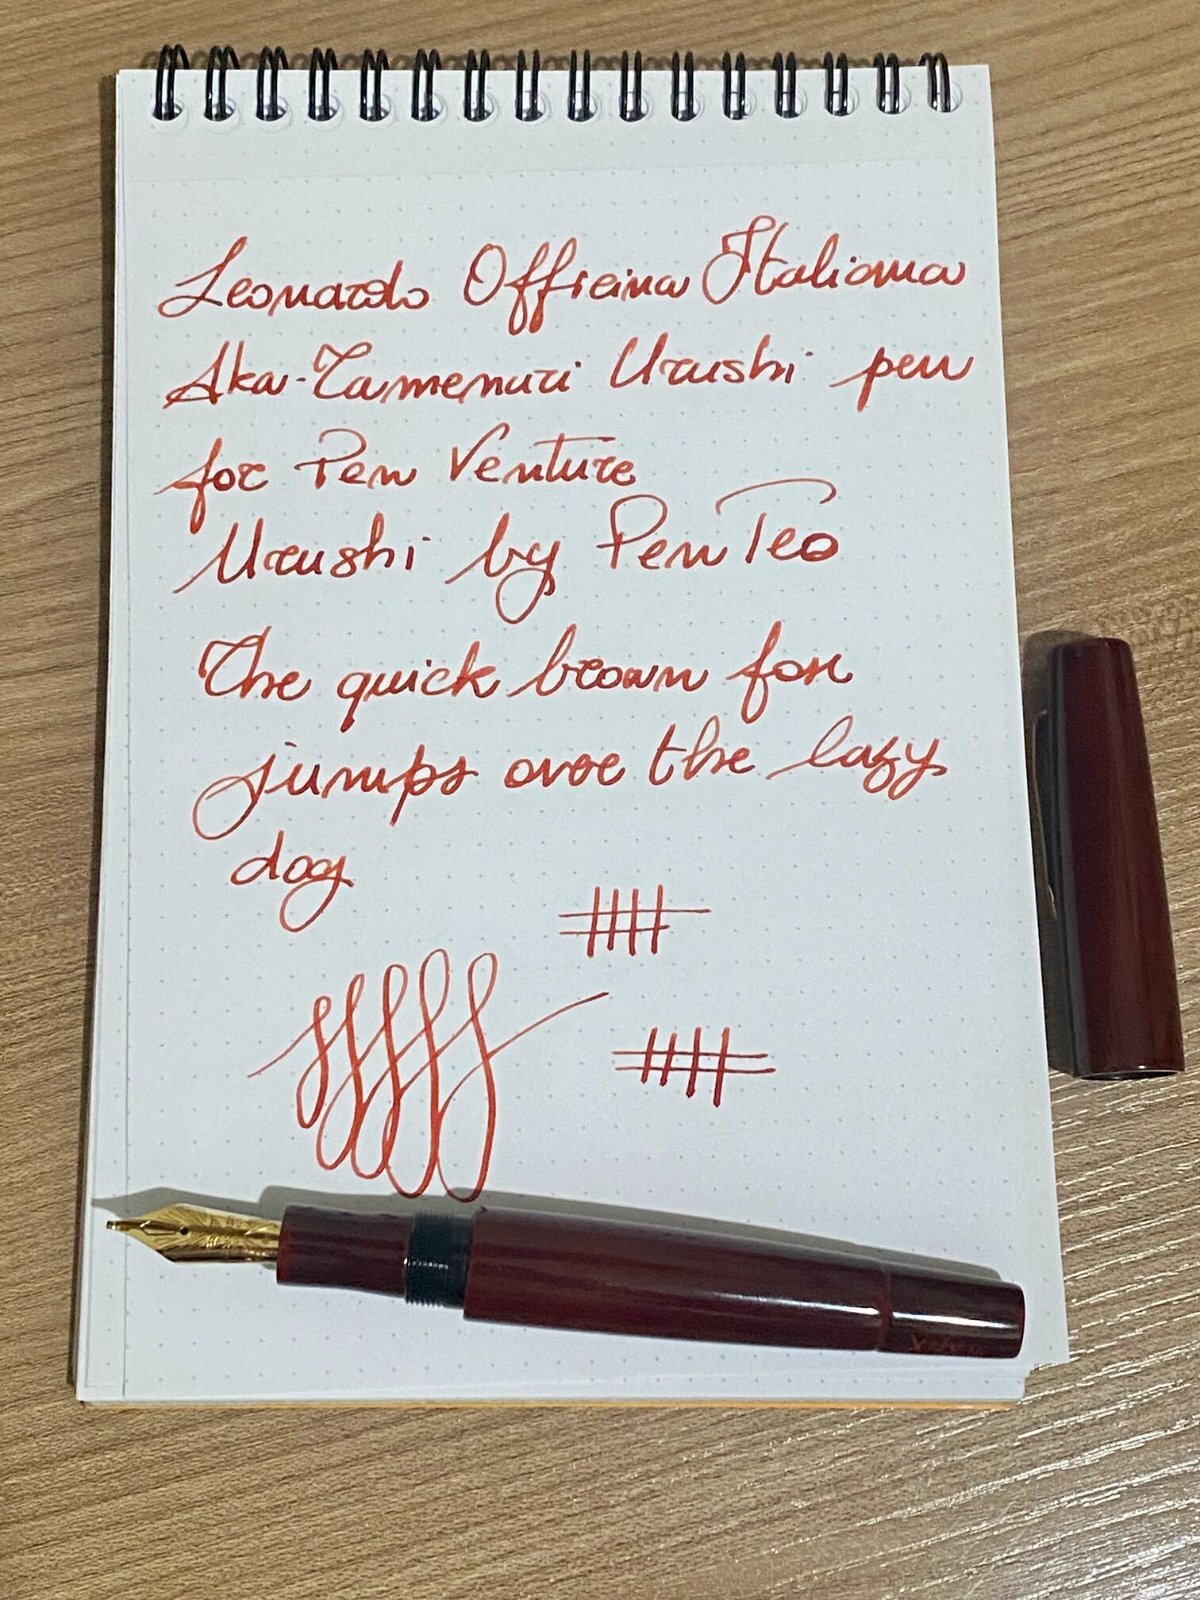 Leonardo Officina Italiana
Aka-Tamenuri Urushi pen
for Pen Venture
Urushi by PenTeo
The quick brown fox
jumps over the lazy
dog